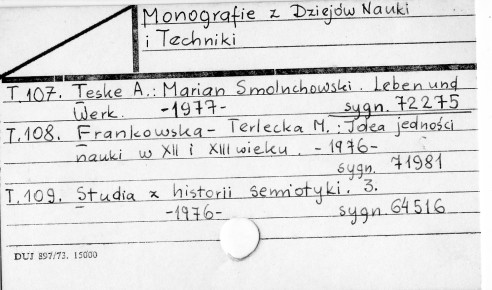 Monografie z Dziejów Nauki
i Techniki
T.107. Teske A.: Marian Smoluchowski. Leben und
Werk. -1977- sygn. 72275
T.108. Frankowska-Terlecka M.: Idea jedności
nauki w XII i XIII wieku. -1976-
sygn. 71981
T.109. Studia z historii semiotyki. 3.
-1976- sygn. 64516
DUJ 897/73. 15000